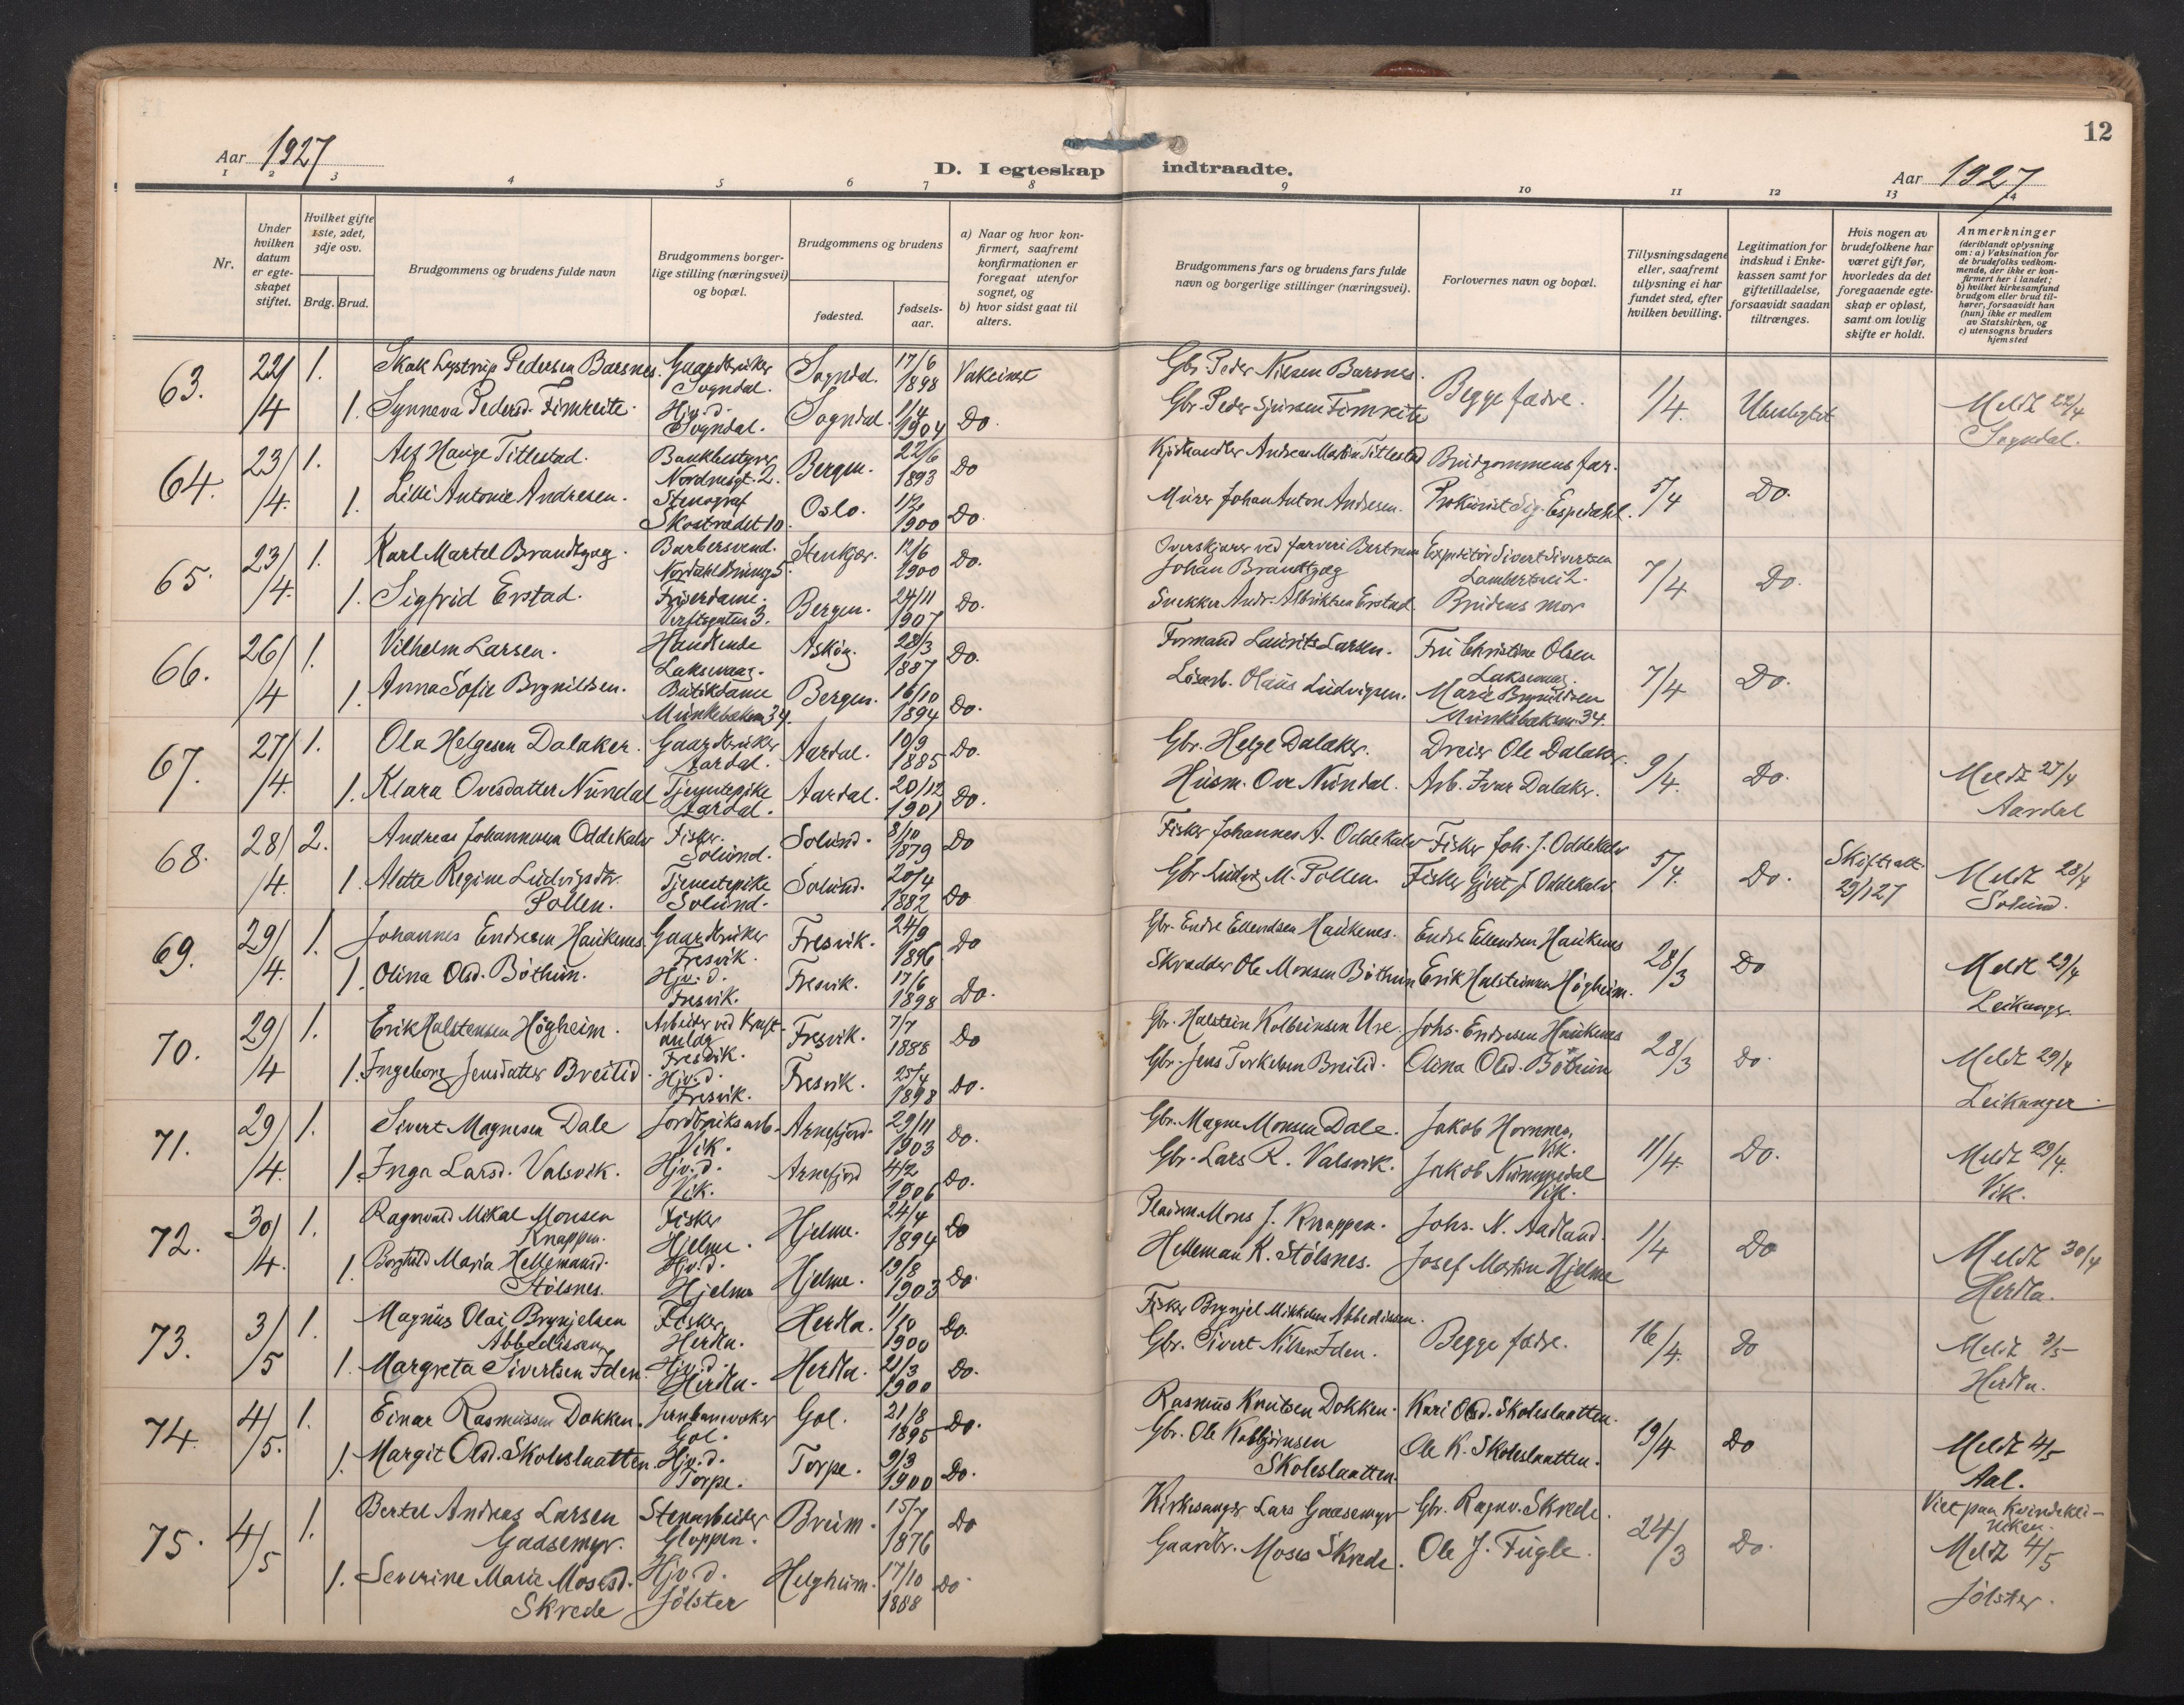 12
Aar 1927
D. I egteskap indtraadte.
Aar 1927
1 2 3 4 5 6 7 8 9 10 11 12 13 14
Nr.
Under hvilken datum er egteskapet stiftet.
Hvilket gifte 1ste, 2det, 3dje osv.
Brdg. Brud.
Brudgommens og brudens fulde navn
Brudgommens borgerlige stilling (næringsvei) og bopæl.
Brudgommens og brudens
fødested.
fødselsaar.
a) Naar og hvor konfirmert, saafremt konfirmationen er foregaat utenfor sognet, og
b) hvor sidst gaat til alters.
Brudgommens fars og brudens fars fulde navn og borgerlige stillinger (næringsvei).
Forlovernes navn og bopæl.
Tillysningsdagene eller, saafremt tillysning ei har fundet sted, efter hvilken bevilling.
Legitimation for indskud i Enkekassen samt for giftetilladelse, forsaavidt saadan tiltrænges.
Hvis nogen av brudefolkene har været gift før, hvorledes da det foregaaende egteskap er opløst, samt om lovlig skifte er holdt.
Anmerkninger (deriblandt oplysning om: a) Vaksination for de brudefolks vedkommende, der ikke er konfirmert her i landet; b) hvilket kirkesamfund brudgom eller brud tilhører, forsaavidt han (hun) ikke er medlem av Statskirken, og c) utensogns bruders hjemsted
63. 22/4 1. Skak Lystrup Pedersen Barsnes. Gaardbruker Sogndal. Sogndal. 17/6 1898 Gbr. Peder Nilsen Barsnes. Begge fædre. 1/4. Meldt 22/4 Sogndal.
1. Synneva Pedersd. Fimreite. Hjv.d. Sogndal. Sogndal. 1/4 1904 Do. Gbr. Peder Sjursen Fimreite
64. 23/4. 1. Alf Hauge Tittestad. Bankbestyrer Nordnesgt. 2. Bergen. 22/6 1893 Do Kjøthandler Andreas Martin Tittestad Brudgommens far. 5/4 Do.
1. Lilli Antonie Andresen. Stenograf Skostrædet 10. Oslo. 1/2 1900 Do. Murer Johan Anton Andresen. Prokurist Sig. Espedahl.
65. 23/4. 1. Karl Martel Brandtzæg. Barbersvend. Nordahl Brunsg 5. Stenkjær. 12/6 1900 Do. Overskjærer ved farveri Bertram Johan Brandtzæg Expeditør Sivert Sivertsen Lambertsvei 2. 7/4 Do.
1. Sigfrid Erstad. Friserdame. Verftsgaten 3. Bergen. 24/11 1907 Do. Snekker Andr. Albriktsen Erstad. Brudens mor
66. 26/4 1. Vilhelm Larsen. Handlende Laksevaag. Askøy. 28/3 1887 Do. Formand Laurits Larsen. Fru Christine Olsen Laksevaag. 7/4 Do.
1. Anna Sofie Brynildsen. Butikdame Munkebækken 34. Bergen. 16/10 1894 Do. Løsarb. Olaus Ludvigsen. Marie Brynildsen Munkebæksm. 34.
67. 27/4. 1. Ola Helgesen Dalaker. Gaardbruker Aardal. Aardal. 10/9 1885 Do. Gbr. Helge Dalaker. Dreier Ole Dalaker. 9/4. Do. Meldt 27/4 Aardal
1. Klara Ovesdatter Nundal Tjenestepike Aardal. Aardal. 20/12 1901 Do. Husm. Ove Nundal. Arb. Ivar Dalaker.
68. 28/4. 2. Andreas Johannesen Oddekalv Fisker. Solund. Solund. 8/10 1879 Do Fisker Johannes A. Oddekalv Fisker Joh. J. Oddekalv 5/4. Do. Skifteatt. 29/1 27 Meldt 28/4 Solund.
1. Alette Regine Ludvigsdtr. Pollen. Tjenestepike Solund. Solund. 20/4 1882 Do Gbr. Ludvig M. Pollen. Fisker Gjert J. Oddekalv.
69. 29/4. 1. Johannes Endresen Haukenes Gaardbruker Fresvik. Fresvik. 24/9 1896 Do Gbr. Endre Ellendsen Haukenes. Endre Ellendsen Haukenes 28/3 Do Meldt 29/4 Leikanger.
1. Olina Olsd. Bøthun. Hjv.d. Fresvik. Fresvik. 17/6 1898 Do. Skrædder Ole Monsen Bøthun Erik Halsteinsen Høgheim.
70. 29/4 1. Erik Halstensen Høgheim. Arbeider ved Kraftanlæg Fresvik. Fresvik. 7/7 1888 Do Gbr. Halstein Kolbeinsen Ure. Johs. Endresen Haukenes 28/3 Do. Meldt 29/4 Leikanger.
1. Ingeborg Jensdatter Breilid. Hjv.d. Fresvik. Fresvik. 25/4 1898 Do. Gbr. Jens Torkelsen Breilid. Olina Olsd. Bøthun
71. 29/4. 1. Sivert Magnesen Dale Jordbruksarb. Vik. Arnefjord. 29/11 1903 Do. Gbr. Magne Monsen Dale. Jakob Hornnes, Vik. 11/4. Do. Meldt 29/4. Vik.
1. Inga Larsd. Valsvik. Hjv.d. Vik. Arnefjord 4/2 1906 Do. Gbr. Lars R. Valsvik. Jakob Nummedal Vik.
72. 30/4. 1. Ragnvald Mikal Monsen Knappen. Fisker Hjelme. Hjelme. 24/4 1894 Do Mons J. Knappen. Johs. N. Aadland. 1/4 Do Meldt 30/4 Herdla.
1. Borghild Maria Hellemansd. Stølsnes. Hjv.d. Hjelme Hjelme. 19/8 1903 Do. Helleman K. Stølsnes. Josef Martin Hjelme
73. 3/5 1. Magnus Olai Brynjelsen Abbedissen. Fisker Herdla. Herdla. 1/10 1900 Do. Fisker Brynjel Mikkelsen Abbedissen. Begge fædre. 16/4. Do Meldt 3/5 Herdla.
1. Margreta Sivertsen Iden. Hjv.d. Herdla. Herdla. 21/3 1900 Do. Gbr. Sivert Nilsen Iden.
74. 4/5. 1. Einar Rasmussen Dokken. Jernbanevokter Gol. Gol. 21/8 1895 Do. Rasmus Knutsen Dokken. Kari Olsd. Skoleslaatten. 19/4 Do Meldt 4/5 Aal.
1. Margit Olsd. Skoleslaatten Hjv.d. Torpe. Torpe. 9/3 1900 Do. Gbr. Ole Kolbjørnsen Skoleslaatten. Ole K. Skoleslaatten.
75. 4/5 1. Bertel Andreas Larsen Gaasemyr. Stenarbeider Gloppen. Breim. 15/7 1876 Do Kirkesanger Lars Gaasemyr Gbr. Ragnv. Skrede. 24/3 Do. Viet paa Kvindeklinikken. Meldt 4/5 Jølster.
1. Severine Marie Mosesd. Skrede Hjv.d. Jølster Helgheim. 17/10 1888 Do Gaardbr. Moses Skrede. Ole J. Fugle.